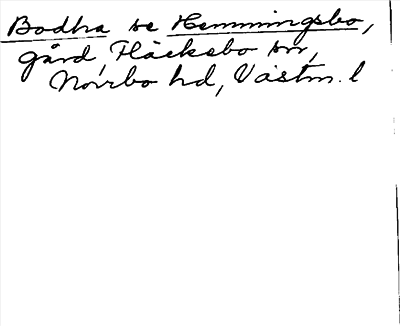 Bodha se Hemmingsbo,
gård, Fläckebo sn,
Norrbo hd, Västm. l